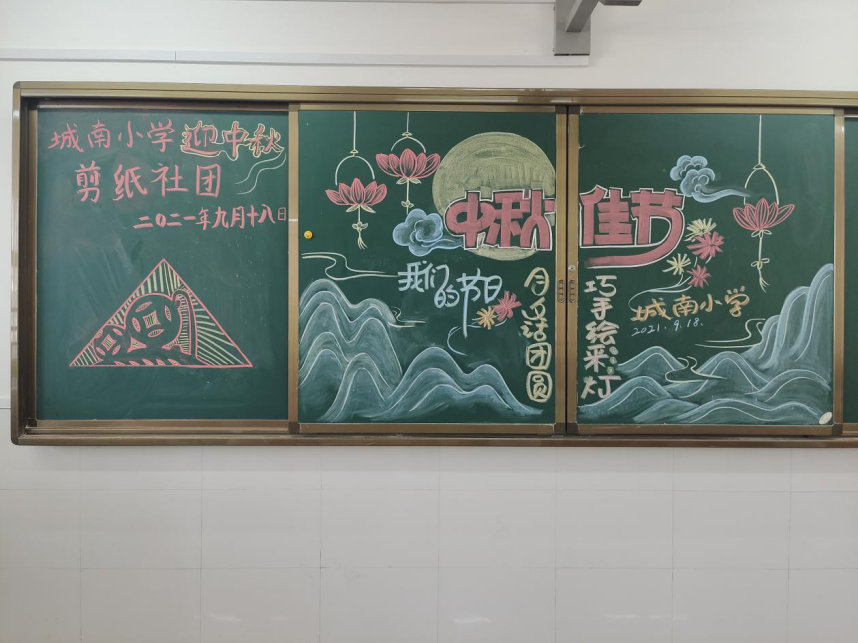 城南小学迎中秋
剪纸社团
二〇二一年九月十八日
中秋佳节
我们
的节日
月夕话团圆
巧手绘采灯
城南小学
2021.9.18.